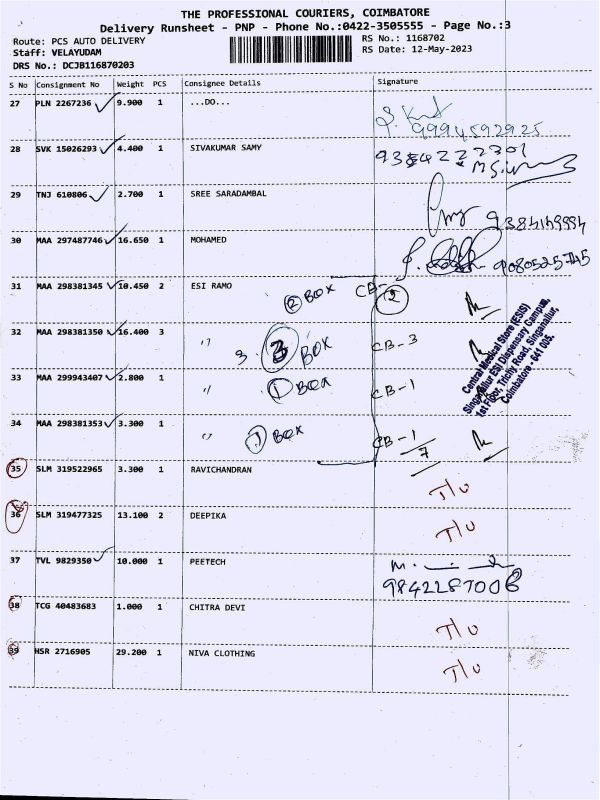 THE PROFESSIONAL COURIERS, COIMBATORE
Delivery Runsheet - PNP - Phone No.:0422-3505555 - Page No.:3
Route: PCS AUTO DELIVERY RS No.: 1168702
Staff: VELAYUDAM RS Date: 12-May-2023
DRS No.: DCJB116870203
S No Consignment No Weight PCS Consignee Details Signature
27 PLN 2267236 9.900 1 ...DO...
9994592925
28 SVK 15026293 4.400 1 SIVAKUMAR SAMY
29 TNJ 610806 2.700 1 SREE SARADAMBAL
9384149994
30 MAA 297487746 16.650 1 MOHAMED
9080525745
31 MAA 298381345 10.450 2 ESI RAMO
2 BOX CB-2
32 MAA 298381350 16.400 3 " 3 BOX CB-3
33 MAA 299943407 2.800 1 " 1 BOX CB-1
34 MAA 298381353 3.300 1 " 1 BOX CB-1
7
Central Medical Store (ESIS)
Singanallur ESI Dispensary Campus,
1st Floor, Trichy Road, Singanallur,
Coimbatore - 641 005.
35 SLM 319522965 3.300 1 RAVICHANDRAN T/U
36 SLM 319477325 13.100 2 DEEPIKA T/U
37 TVL 9829350 10.000 1 PEETECH
9842287006
38 TCG 40483683 1.000 1 CHITRA DEVI T/U
39 HSR 2716905 29.200 1 NIVA CLOTHING T/U